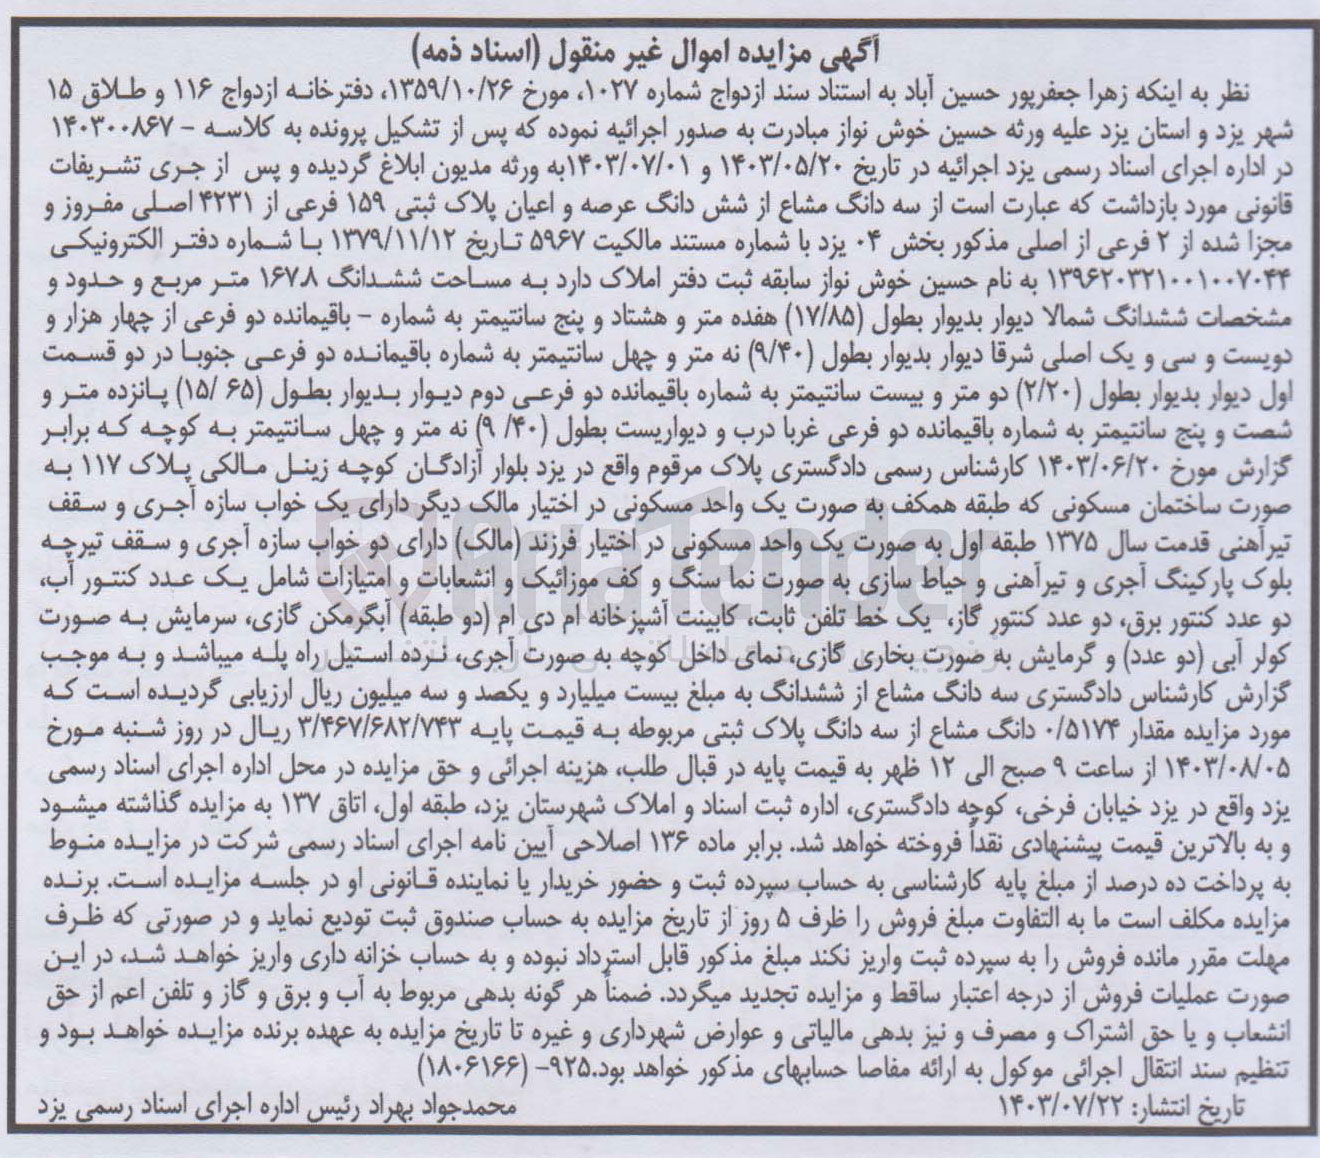 آگهی مزایده اموال غیر منقول (اسناد ذمه)
نظر به اینکه زهرا جعفرپور حسین آباد به استناد سند ازدواج شماره ۱۰۲۷، مورخ ۱۳۵۹/۱۰/۲۶، دفترخانه ازدواج ۱۱۶ و طلاق ۱۵
شهر یزد و استان یزد علیه ورثه حسین خوش نواز مبادرت به صدور اجرائیه نموده که پس از تشکیل پرونده به کلاسه – ۱۴۰۳۰۰۸۶۷
در اداره اجرای اسناد رسمی یزد اجرائیه در تاریخ ۱۴۰۳/۰۵/۲۰ و ۱۴۰۳/۰۷/۰۱به ورثه مدیون ابلاغ گردیده و پس از جری تشریفات
قانونی مورد بازداشت که عبارت است از سه دانگ مشاع از شش دانگ عرصه و اعیان پلاک ثبتی ۱۵۹ فرعی از ۴۲۳۱ اصلی مفروز و
مجزا شده از ۲ فرعی از اصلی مذکور بخش ۰۴ یزد با شماره مستند مالکیت ۵۹۶۷ تاریخ ۱۳۷۹/۱۱/۱۲ با شماره دفتر الکترونیکی
۱۳۹۶۲۰۳۲۱۰۰۱۰۰۷۰۴۴ به نام حسین خوش نواز سابقه ثبت دفتر املاک دارد به مساحت ششدانگ ۱۶۷.۸ متر مربع و حدود و
مشخصات ششدانگ شمالا دیوار بدیوار بطول (۱۷/۸۵) هفده متر و هشتاد و پنج سانتیمتر به شماره – باقیمانده دو فرعی از چهار هزار و
دویست و سی و یک اصلی شرقا دیوار بدیوار بطول (۹/۴۰) نه متر و چهل سانتیمتر به شماره باقیمانده دو فرعی جنوبا در دو قسمت
اول دیوار بدیوار بطول (۲/۲۰) دو متر و بیست سانتیمتر به شماره باقیمانده دو فرعی دوم دیوار بدیوار بطول (۶۵ /۱۵) پانزده متر و
شصت و پنج سانتیمتر به شماره باقیمانده دو فرعی غربا درب و دیواریست بطول (۴۰/ ۹) نه متر و چهل سانتیمتر به کوچه که برابر
گزارش مورخ ۱۴۰۳/۰۶/۲۰ کارشناس رسمی دادگستری پلاک مرقوم واقع در یزد بلوار آزادگان کوچه زینل مالکی پلاک ۱۱۷ به
صورت ساختمان مسکونی که طبقه همکف به صورت یک واحد مسکونی در اختیار مالک دیگر دارای یک خواب سازه آجری و سقف
تیرآهنی قدمت سال ۱۳۷۵ طبقه اول به صورت یک واحد مسکونی در اختیار فرزند (مالک) دارای دو خواب سازه آجری و سقف تیرچه
بلوک پارکینگ آجری و تیرآهنی و حیاط سازی به صورت نما سنگ و کف موزائیک و انشعابات و امتیازات شامل یک عدد کنتور آب،
دو عدد کنتور برق، دو عدد کنتور گاز، یک خط تلفن ثابت، کابینت آشپزخانه ام دی ام (دو طبقه) آبگرمکن گازی، سرمایش به صورت
کولر آبی (دو عدد) و گرمایش به صورت بخاری گازی، نمای داخل کوچه به صورت آجری، نرده استیل راه پله میباشد و به موجب
گزارش کارشناس دادگستری سه دانگ مشاع از ششدانگ به مبلغ بیست میلیارد و یکصد و سه میلیون ریال ارزیابی گردیده است که
مورد مزایده مقدار ۰/۵۱۷۴ دانگ مشاع از سه دانگ پلاک ثبتی مربوطه به قیمت پایه ۳/۴۶۷/۶۸۲/۷۴۳ ریال در روز شنبه مورخ
۱۴۰۳/۰۸/۰۵ از ساعت ۹ صبح الی ۱۲ ظهر به قیمت پایه در قبال طلب، هزینه اجرائی و حق مزایده در محل اداره اجرای اسناد رسمی
یزد واقع در یزد خیابان فرخی، کوچه دادگستری، اداره ثبت اسناد و املاک شهرستان یزد، طبقه اول، اتاق ۱۳۷ به مزایده گذاشته میشود
و به بالاترین قیمت پیشنهادی نقداً فروخته خواهد شد. برابر ماده ۱۳۶ اصلاحی آیین نامه اجرای اسناد رسمی شرکت در مزایده منوط
به پرداخت ده درصد از مبلغ پایه کارشناسی به حساب سپرده ثبت و حضور خریدار یا نماینده قانونی او در جلسه مزایده است. برنده
مزایده مکلف است ما به التفاوت مبلغ فروش را ظرف ۵ روز از تاریخ مزایده به حساب صندوق ثبت تودیع نماید و در صورتی که ظرف
مهلت مقرر مانده فروش را به سپرده ثبت واریز نکند مبلغ مذکور قابل استرداد نبوده و به حساب خزانه داری واریز خواهد شد، در این
صورت عملیات فروش از درجه اعتبار ساقط و مزایده تجدید میگردد. ضمناً هر گونه بدهی مربوط به آب و برق و گاز و تلفن اعم از حق
انشعاب و یا حق اشتراک و مصرف و نیز بدهی مالیاتی و عوارض شهرداری و غیره تا تاریخ مزایده به عهده برنده مزایده خواهد بود و
تنظیم سند انتقال اجرائی موکول به ارائه مفاصا حسابهای مذکور خواهد بود.۹۲۵– (۱۸۰۶۱۶۶)
تاریخ انتشار: ۱۴۰۳/۰۷/۲۲ محمدجواد بهراد رئیس اداره اجرای اسناد رسمی یزد
AriaTender